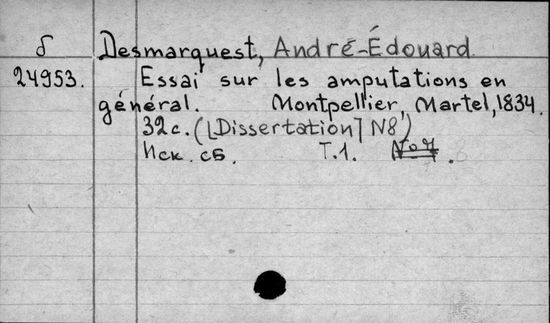 δ Desmarquest, André-Édouard
24953. Essai sur les amputations en
général. Montpellier, Martel, 1834.
32 с. ([Dissertation] N8)
Иск. сб. Т.1.